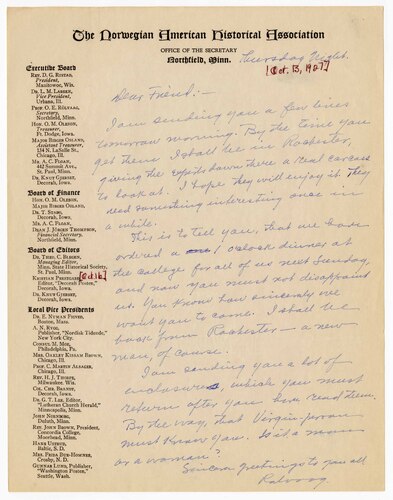 The Norwegian American Historical Association
OFFICE OF THE SECRETARY
Northfield, Minn.
Thursday Night.
[Oct. 13, 1927]
Executive Board
REV. D. G. RISTAD,
President,
Manitowoc, Wis.
DR. L. M. LARSON,
Vice President,
Urbana, Ill.
PROF. O. E. RÖLVAAG,
Secretary,
Northfield, Minn.
HON. O. M. OLESON,
Treasurer,
Ft. Dodge, Iowa.
MAJOR BIRGER OSLAND,
Assistant Treasurer,
134 N. LaSalle St.,
Chicago, Ill.
MR. A. C. FLOAN,
St. Paul, Minn.
DR. KNUT GJERSET,
Decorah, Iowa.
Board of Finance
HON. O. M. OLESON,
MAJOR BIRGER OSLAND,
DR. T. STABO,
Decorah, Iowa.
MR. A. C. FLOAN,
DEAN J. JÖRGEN THOMPSON,
Financial Secretary,
Northfield, Minn.
Board of Editors
DR. THEO. C. BLEGEN,
Managing Editor,
Minn. State Historical Society,
St. Paul, Minn.
KRISTIAN PRESTGARD,
Editor, "Decorah Posten,"
Decorah, Iowa.
DR. KNUT GJERSET,
Decorah, Iowa.
[Oct 16]
Local Vice Presidents
Boston, Mass.
A. N. RYGG,
Publisher, "Nordisk Tidende,"
New York City.
CONSUL M. MOE,
Philadelphia, Pa.
MRS. OAKLEY KISSAM BROWN,
Chicago, Ill.
Chicago, Ill.
REV. H. J. THORPE,
Milwaukee, Wis.
COL. CHR. BRANDT,
Decorah, Iowa.
DR. G. T. LEE, Editor,
"Lutheran Church Herald,"
Minneapolis, Minn.
JOHN NORMAN,
Duluth, Minn.
REV. JOHN BROWN, President,
Concordia College,
Moorhead, Minn.
HANS USTRUD,
Baltic, S. D.
MRS. FRIDA BUE-HOMNES,
Crosby, N. D.
GUNNAR LUND, Publisher,
"Washington Posten,"
Seattle, Wash.
Dear Friend:-
I am sending you a few lines
tomorrow morning. By the time you
get them I shall be in Rochester,
giving the experts down there a real carcass
to look at. I hope they will enjoy it. They
need something interesting once in
a while.
This is to tell you, that we have
ordered a 1 o'clock dinner at
the College for all of us next Sunday,
and now you must not disappoint
us. You know how sincerely we
want you to come. I shall be
back from Rochester – a new
man, of course.
I am sending you a lot of
enclosures, which you must
return after you have read them.
By the way, that Virgin person
must know you. Is it a man
or a woman?
Sincere greetings to you all
Rølvaag